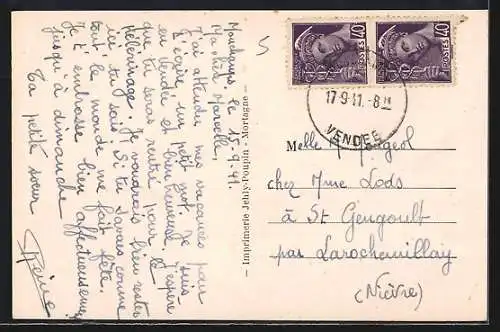 Mouchamps, le 15-9-41.
Ma chère Marcelle,
J'ai attendu mes vacances pour
t'écrire un petit mot. Je suis
en Vendée et bien heureuse. J'espère
que tu seras rentrée pour le
pèlerinage. Je voudrais bien rester
ici tu sais! Si tu savais comme
tout le monde me fait fête.
Je t'embrasse bien affectueusement
jusqu'à dimanche
Ta petite soeur
Reine
— Imprimerie Jehly-Poupin - Mortagne —
POSTES 40
POSTES 40
17-9-41
VENDEE
Melle
chez Mme Lods
à St Gengoult
par Larochemillay
(Nièvre)